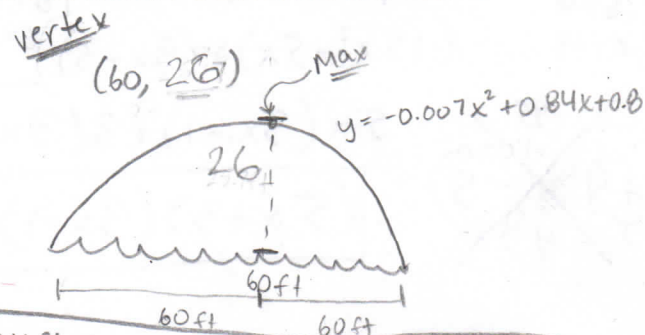 vertex
(60, 26)
Max
y = -0.007x² + 0.84x + 0.8
26
60ft
60 ft
60 ft